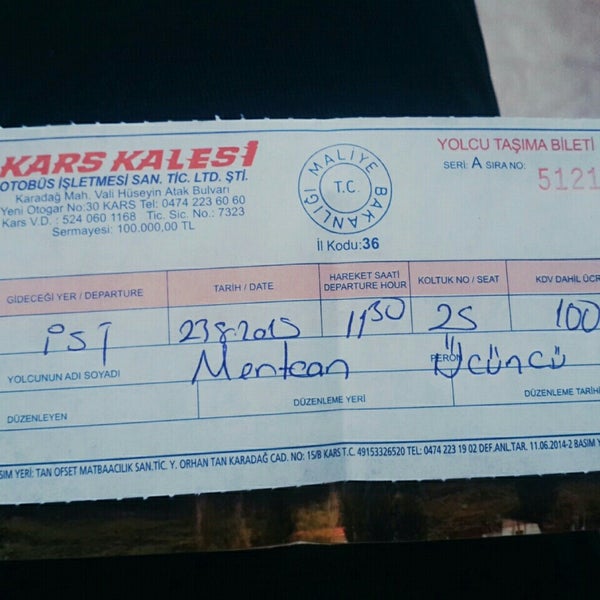 KARS KALESİ
OTOBÜS İŞLETMESİ SAN. TİC. LTD. ŞTİ.
Karadağ Mah. Vali Hüseyin Atak Bulvarı
Yeni Otogar No:30 KARS Tel: 0474 223 60 60
Kars V.D. : 524 060 1168 Tic. Sic. No.: 7323
Sermayesi: 100.000,00 TL
MALİYE BAKANLIĞI
T.C.
İl Kodu:36
YOLCU TAŞIMA BİLETİ
SERİ: A SIRA NO:
5121
GİDECEĞİ YER / DEPARTURE
TARİH / DATE
HAREKET SAATİ
DEPARTURE HOUR
KOLTUK NO / SEAT
KDV DAHİL ÜCR
İST
23.8.2015
11 30
25
100
YOLCUNUN ADI SOYADI
Mentcan
PERON
Üçüncü
DÜZENLEYEN
DÜZENLEME YERİ
DÜZENLEME TARİHİ
SIM YERİ: TAN OFSET MATBAACILIK SAN.TİC. Y. ORHAN TAN KARADAĞ CAD. NO: 15/B KARS T.C. 49153326520 TEL: 0474 223 19 02 DEF.ANL.TAR. 11.06.2014-2 BASIM Y